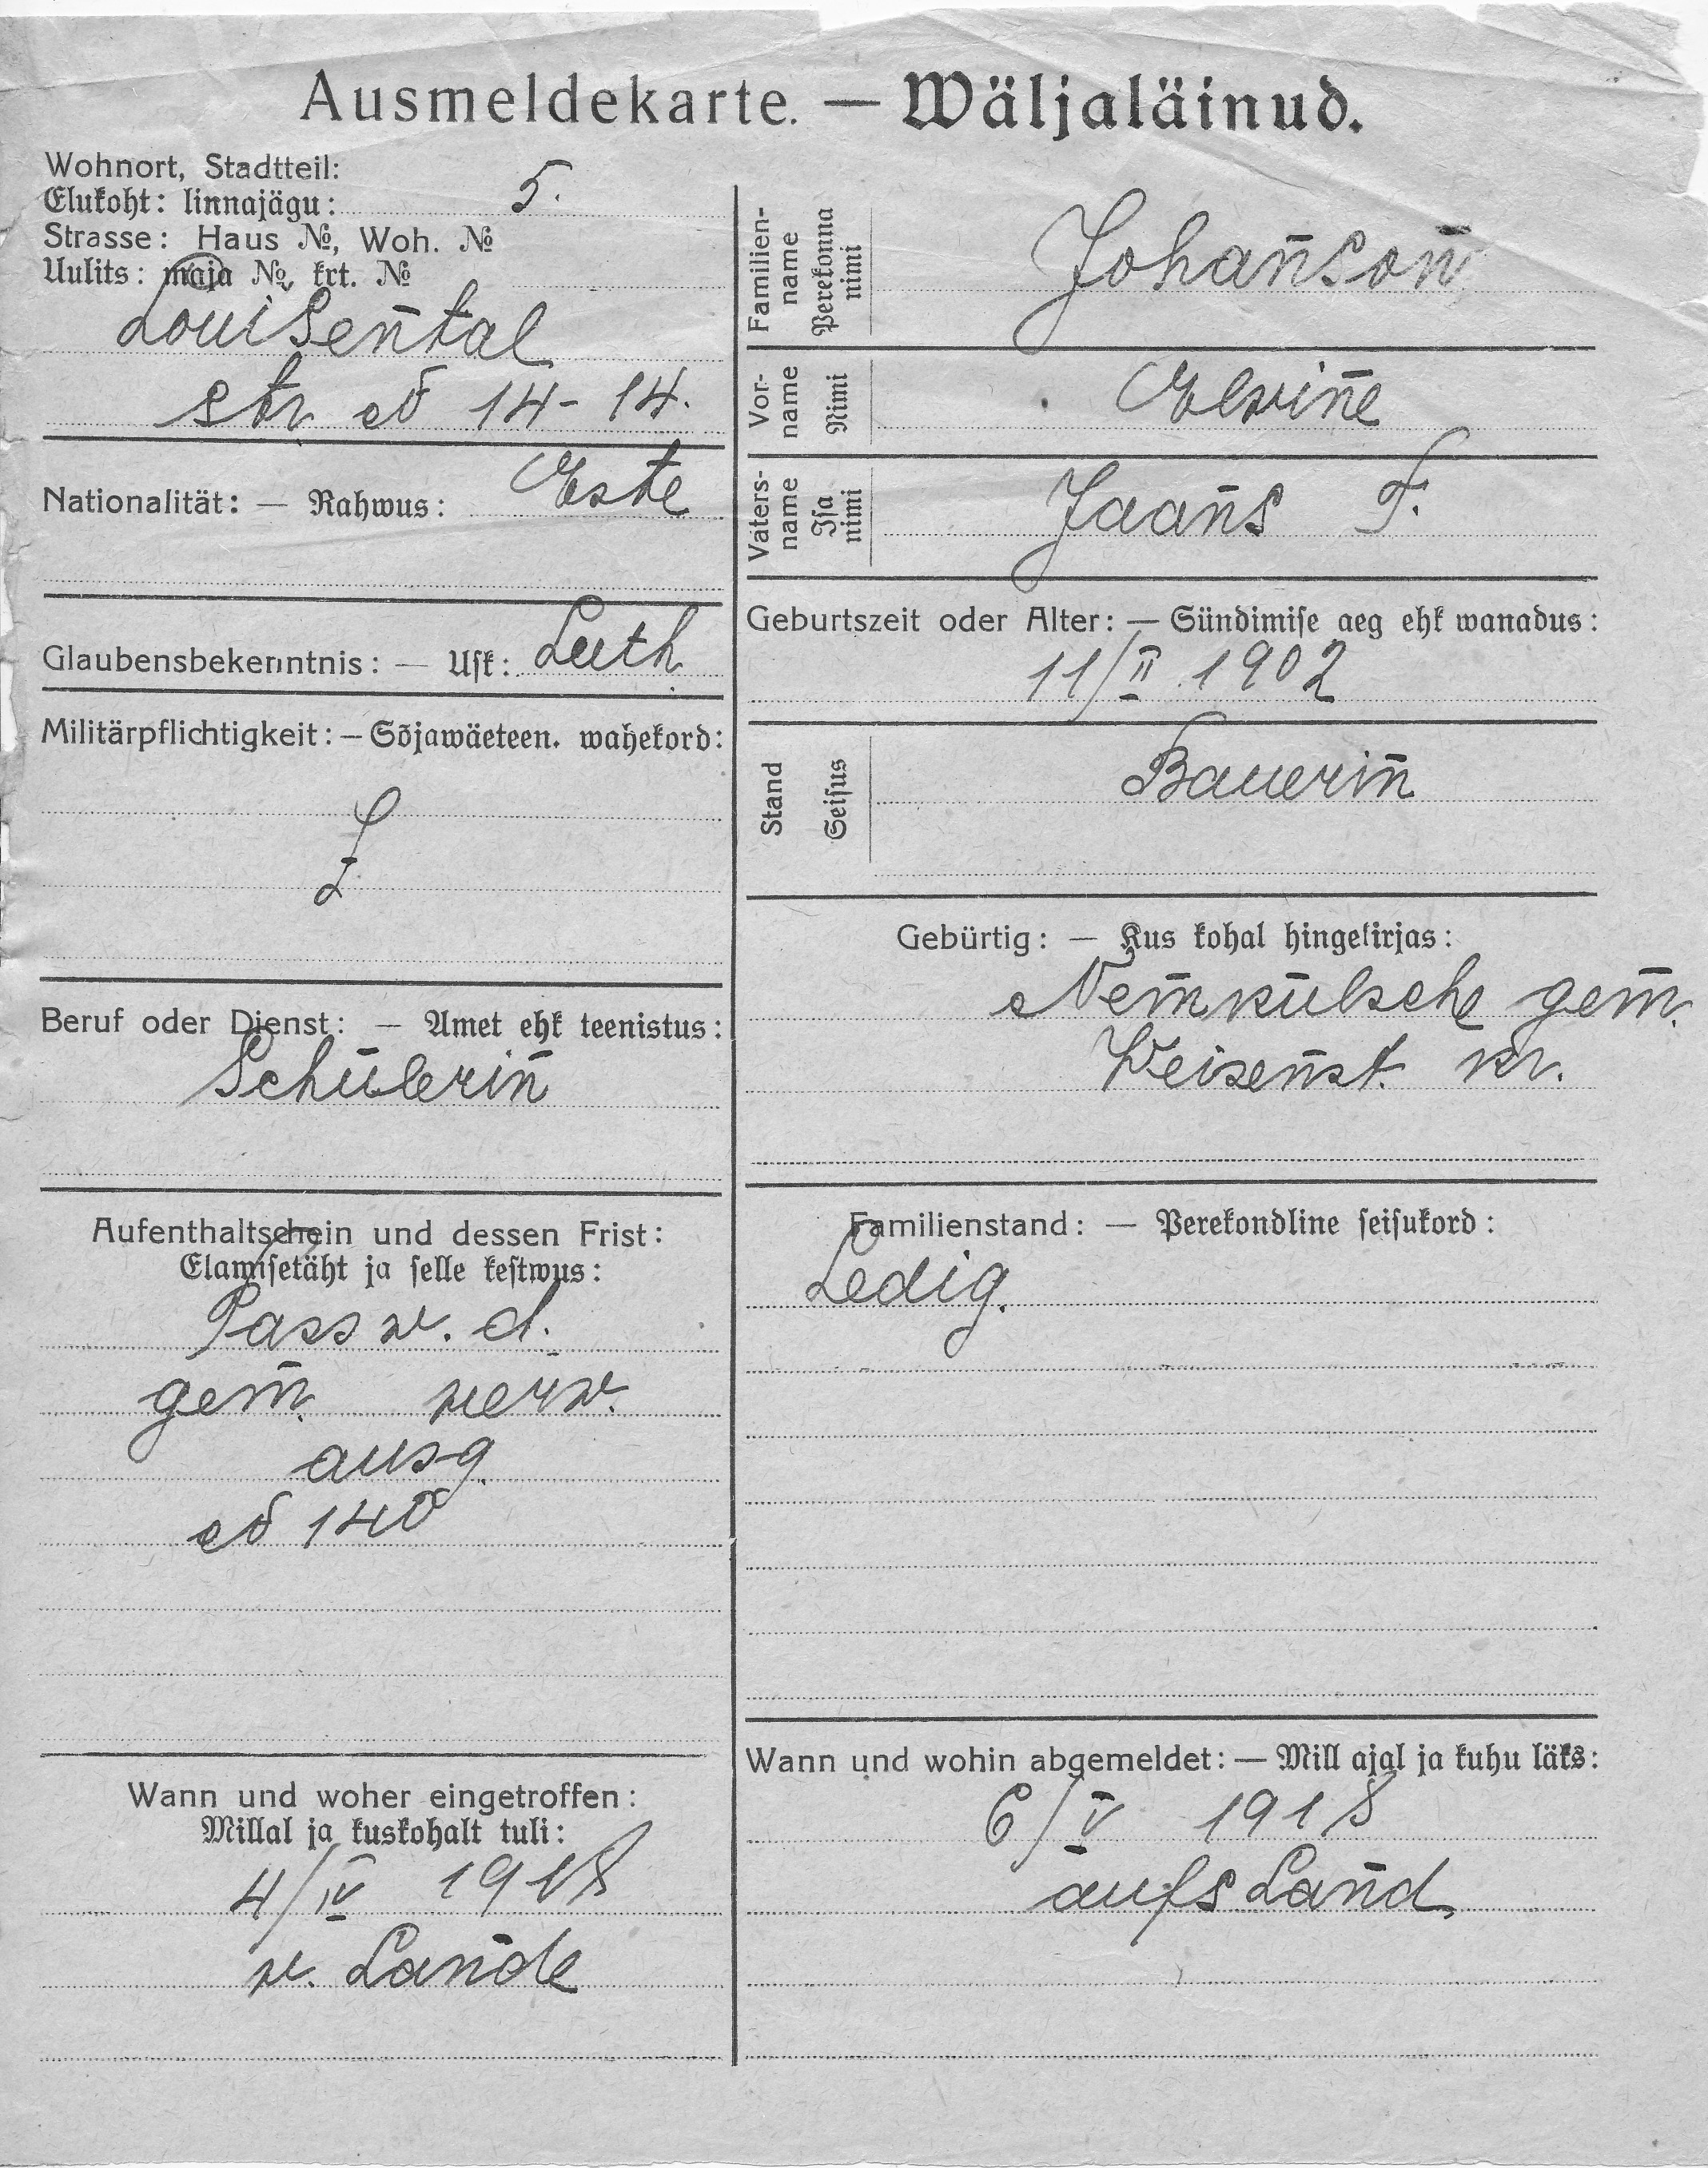 Ausmeldekarte. — Wäljaläinud.
Wohnort, Stadtteil:
Elukoht: linnajägu: 5.
Strasse: Haus №, Woh. №
Uulits: maja №, krt. №
Louisental
str № 14 - 14.
Nationalität: — Rahwus: Este
Glaubensbekenntnis: — Usk: Luth
Militärpflichtigkeit: — Sõjawäeteen. wahekord:
Beruf oder Dienst: — Amet ehk teenistus:
Schülerin
Aufenthaltschein und dessen Frist:
Elamisetäht ja selle kestwus:
Pass v. d.
gem. verw.
ausg.
№ 140
Wann und woher eingetroffen:
Millal ja kuskohalt tuli:
4/IV 1918
v. Lande
Familien-
name
Perekonna
nimi
Johanson
Vor-
name
Nimi
Elvine
Vaters-
name
Isa
nimi
Jaans T.
Geburtszeit oder Alter: — Sündimise aeg ehk wanadus:
11/II 1902
Stand
Seisus
Bauerin
Gebürtig: — Kus kohal hingekirjas:
gem.
Weisenst. kr.
Familienstand: — Perekondline seisukord:
Ledig.
Wann und wohin abgemeldet: — Mill ajal ja kuhu läks:
6/V 1918
aufs Land